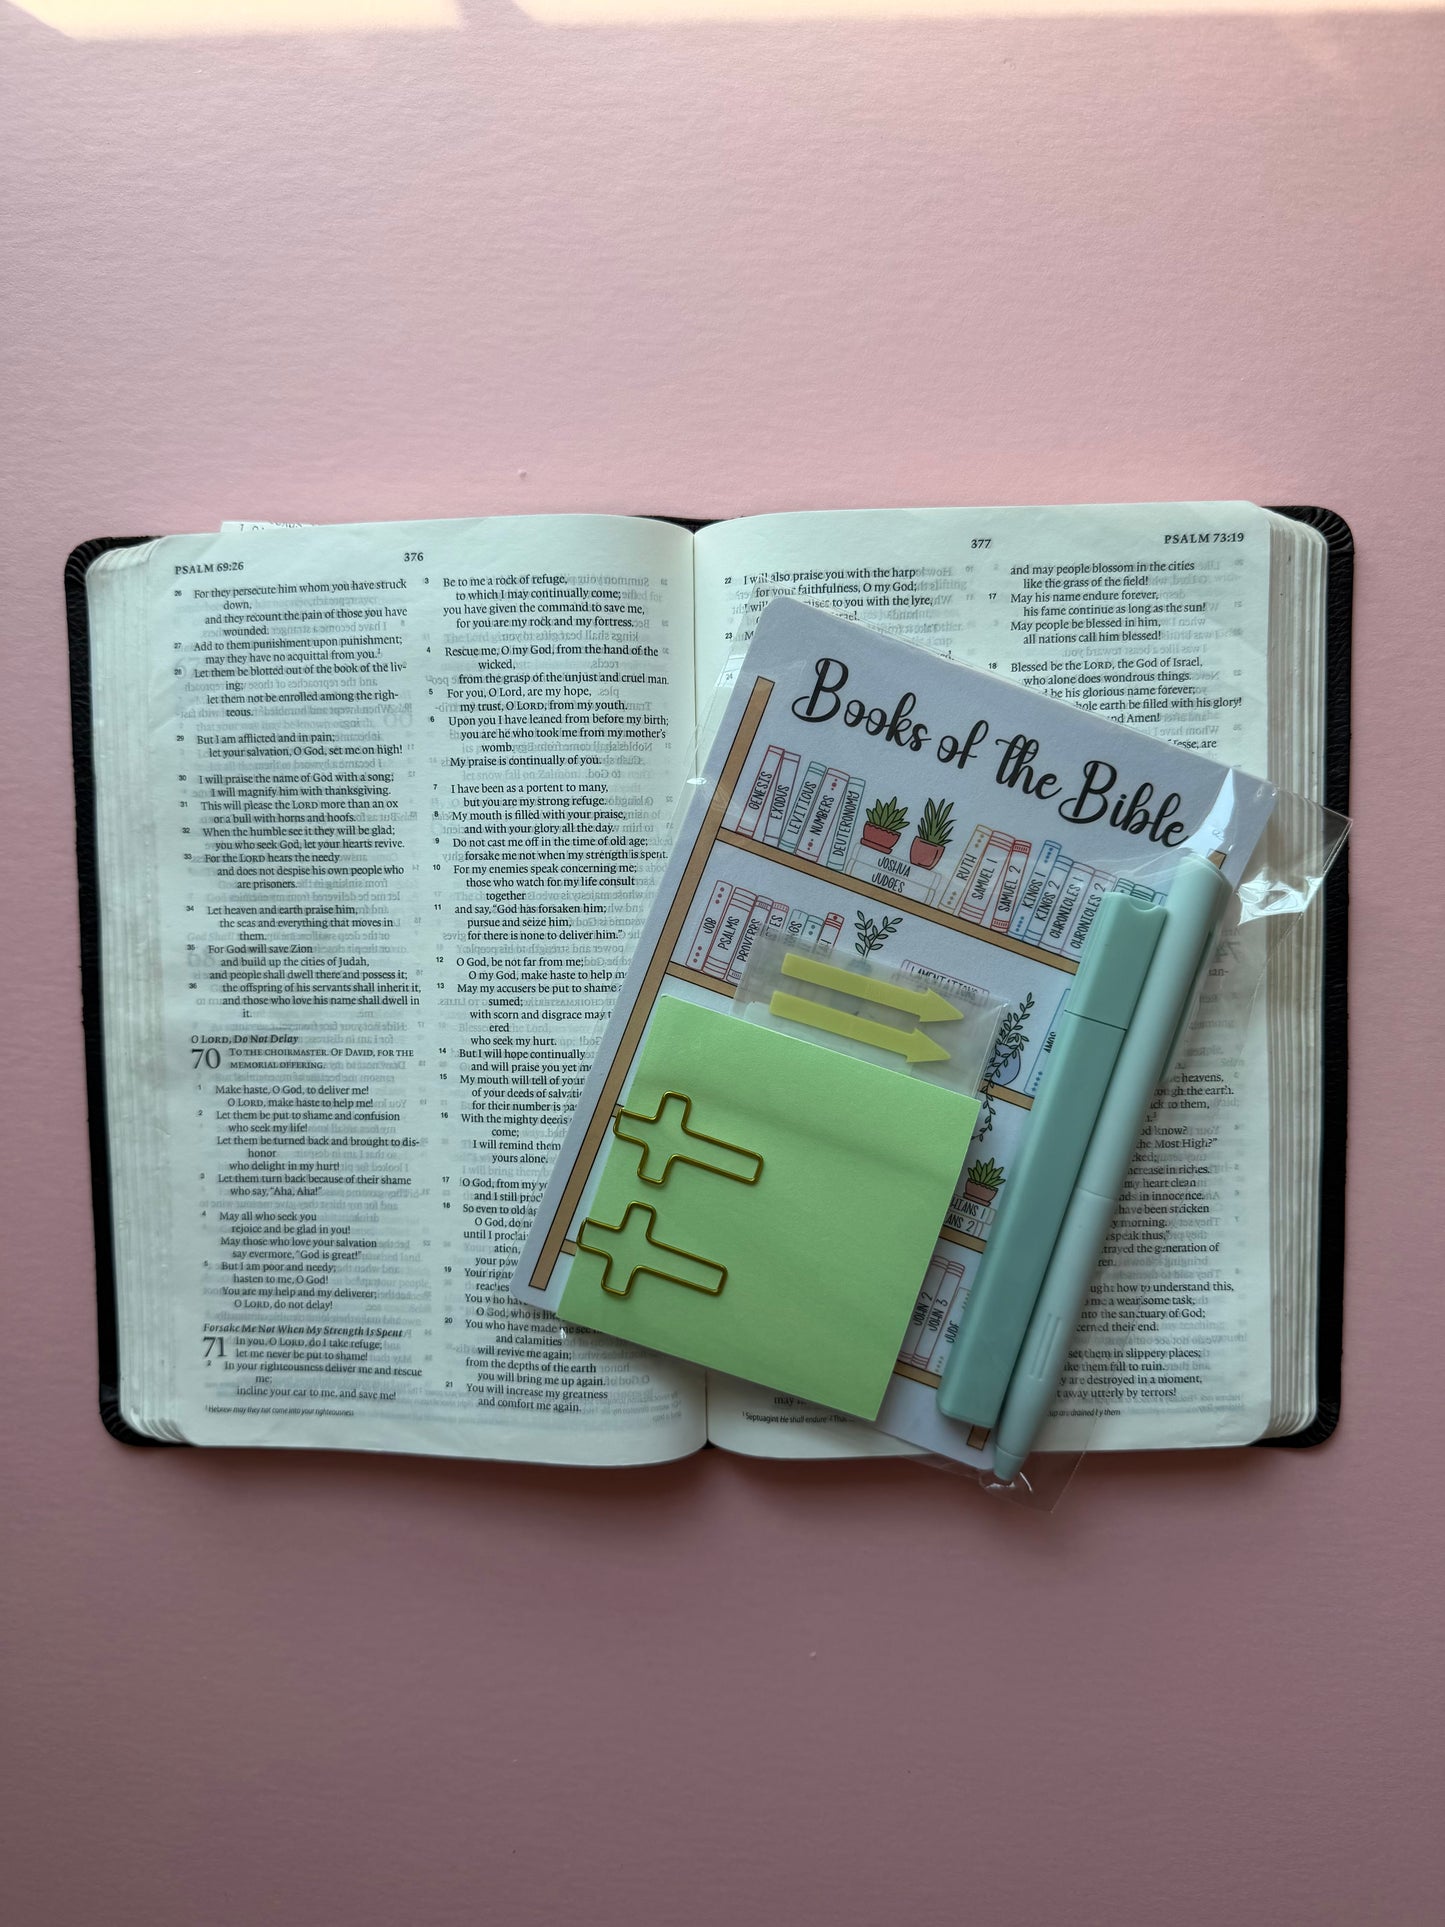 PSALM 69:26
376
26 For they persecute him whom you have struck
down,
and they recount the pain of those you have
wounded.
27 Add to them punishment upon punishment;
may they have no acquittal from you.¹
28 Let them be blotted out of the book of the liv-
ing;
let them not be enrolled among the righ-
teous.
29 But I am afflicted and in pain;
let your salvation, O God, set me on high!
30 I will praise the name of God with a song;
I will magnify him with thanksgiving.
31 This will please the LORD more than an ox
or a bull with horns and hoofs.
32 When the humble see it they will be glad;
you who seek God, let your hearts revive.
33 For the LORD hears the needy
and does not despise his own people who
are prisoners.
34 Let heaven and earth praise him,
the seas and everything that moves in
them.
35 For God will save Zion
and build up the cities of Judah,
and people shall dwell there and possess it;
36 the offspring of his servants shall inherit it,
and those who love his name shall dwell in
it.
O LORD, Do Not Delay
70 TO THE CHOIRMASTER. OF DAVID, FOR THE
MEMORIAL OFFERING.
1 Make haste, O God, to deliver me!
O LORD, make haste to help me!
2 Let them be put to shame and confusion
who seek my life!
Let them be turned back and brought to dis-
honor
who delight in my hurt!
3 Let them turn back because of their shame
who say, "Aha, Aha!"
4 May all who seek you
rejoice and be glad in you!
May those who love your salvation
say evermore, "God is great!"
5 But I am poor and needy;
hasten to me, O God!
You are my help and my deliverer;
O LORD, do not delay!
Forsake Me Not When My Strength Is Spent
71 In you, O LORD, do I take refuge;
let me never be put to shame!
2 In your righteousness deliver me and rescue
me;
incline your ear to me, and save me!
¹ Hebrew may they not come into your righteousness
3 Be to me a rock of refuge,
to which I may continually come;
you have given the command to save me,
for you are my rock and my fortress.
4 Rescue me, O my God, from the hand of the
wicked,
from the grasp of the unjust and cruel man.
5 For you, O Lord, are my hope,
my trust, O LORD, from my youth.
6 Upon you I have leaned from before my birth;
you are he who took me from my mother's
womb.
My praise is continually of you.
7 I have been as a portent to many,
but you are my strong refuge.
8 My mouth is filled with your praise,
and with your glory all the day.
9 Do not cast me off in the time of old age;
forsake me not when my strength is spent.
10 For my enemies speak concerning me;
those who watch for my life consult
together
11 and say, "God has forsaken him;
pursue and seize him,
for there is none to deliver him."
12 O God, be not far from me;
O my God, make haste to help m
13 May my accusers be put to shame
sumed;
with scorn and disgrace may t
ered
who seek my hurt.
14 But I will hope continually
and will praise you yet m
15 My mouth will tell of your
of your deeds of salvati
for their number is pa
16 With the mighty deeds
come;
I will remind them
yours alone.
17 O God, from my yo
and I still procl
18 So even to old a
O God, do no
until I proclai
ation,
your pow
19 Your right
reaches
You who hav
O God, who is lik
20 You who have made me see
and calamities
will revive me again;
from the depths of the earth
you will bring me up again.
21 You will increase my greatness
and comfort me again.
377
PSALM 73:19
22 I will also praise you with the harp
for your faithfulness, O my God;
to you with the lyre,
23
and may people blossom in the cities
like the grass of the field!
17 May his name endure forever,
his fame continue as long as the sun!
May people be blessed in him,
all nations call him blessed!
18 Blessed be the LORD, the God of Israel,
who alone does wondrous things.
be his glorious name forever;
whole earth be filled with his glory!
and Amen!
Jesse, are
heavens,
through the earth.
ck to them,
know?
the Most High?"
increase in riches.
my heart clean
ds in innocence.
have been stricken
morning.
speak thus,"
trayed the generation of
ren.
ught how to understand this,
me a wearisome task;
nto the sanctuary of God;
cerned their end.
set them in slippery places;
ke them fall to ruin.
y are destroyed in a moment,
t away utterly by terrors!
may
¹ Septuagint He shall endure
up are drained by them
Books of the Bible
GENESIS
EXODUS
LEVITICUS
NUMBERS
DEUTERONOMY
JOSHUA
JUDGES
RUTH
SAMUEL 1
SAMUEL 2
KINGS 1
KINGS 2
CHRONICLES 1
CHRONICLES 2
JOB
PSALMS
PROVERBS
LAMENTATIONS
AMOS
HIANS 1
ANS 2
JOHN 2
JOHN 3
JUDE